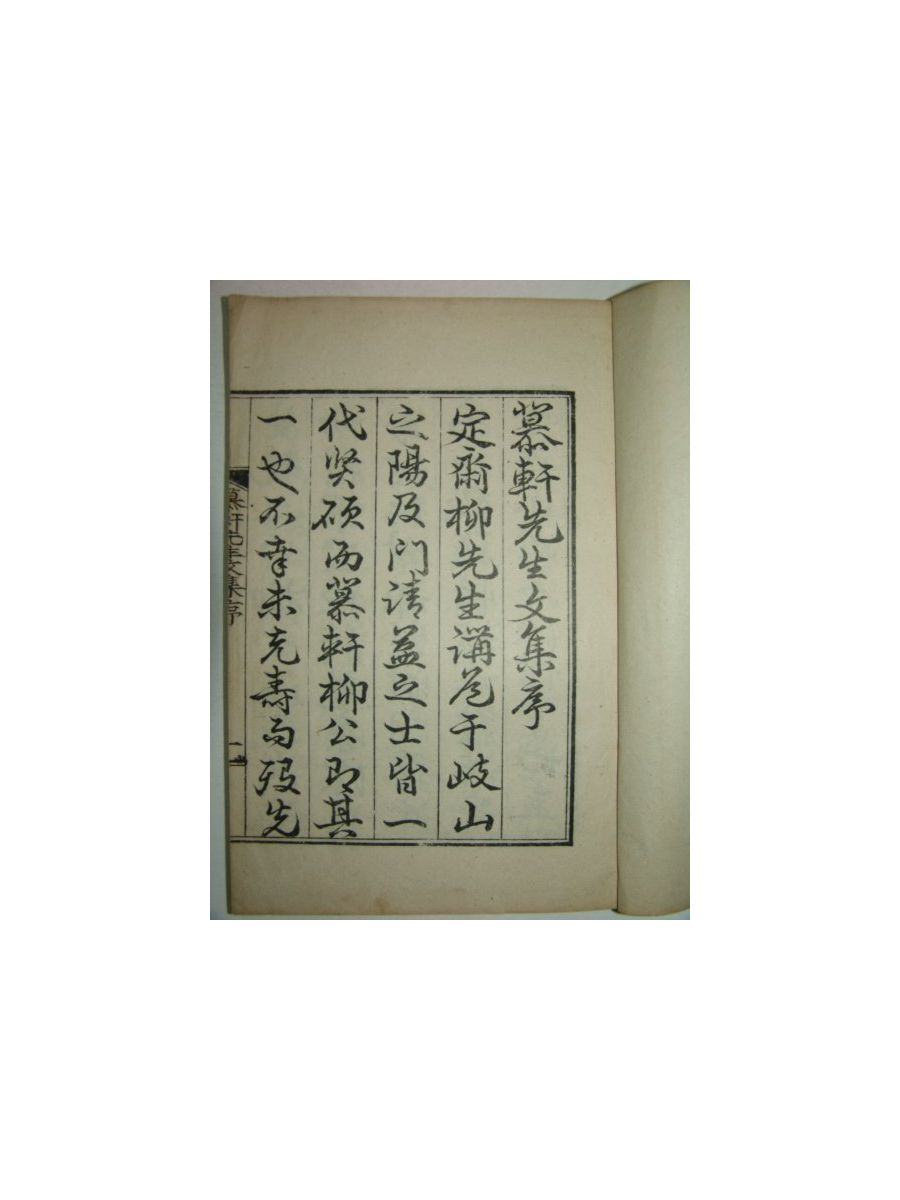 慕軒先生文集序
定齋柳先生講道于岐山
之陽及門請益之士皆一
代賢碩而慕軒柳公即其
一也不幸未克壽而歿先
慕軒先生文集序
一